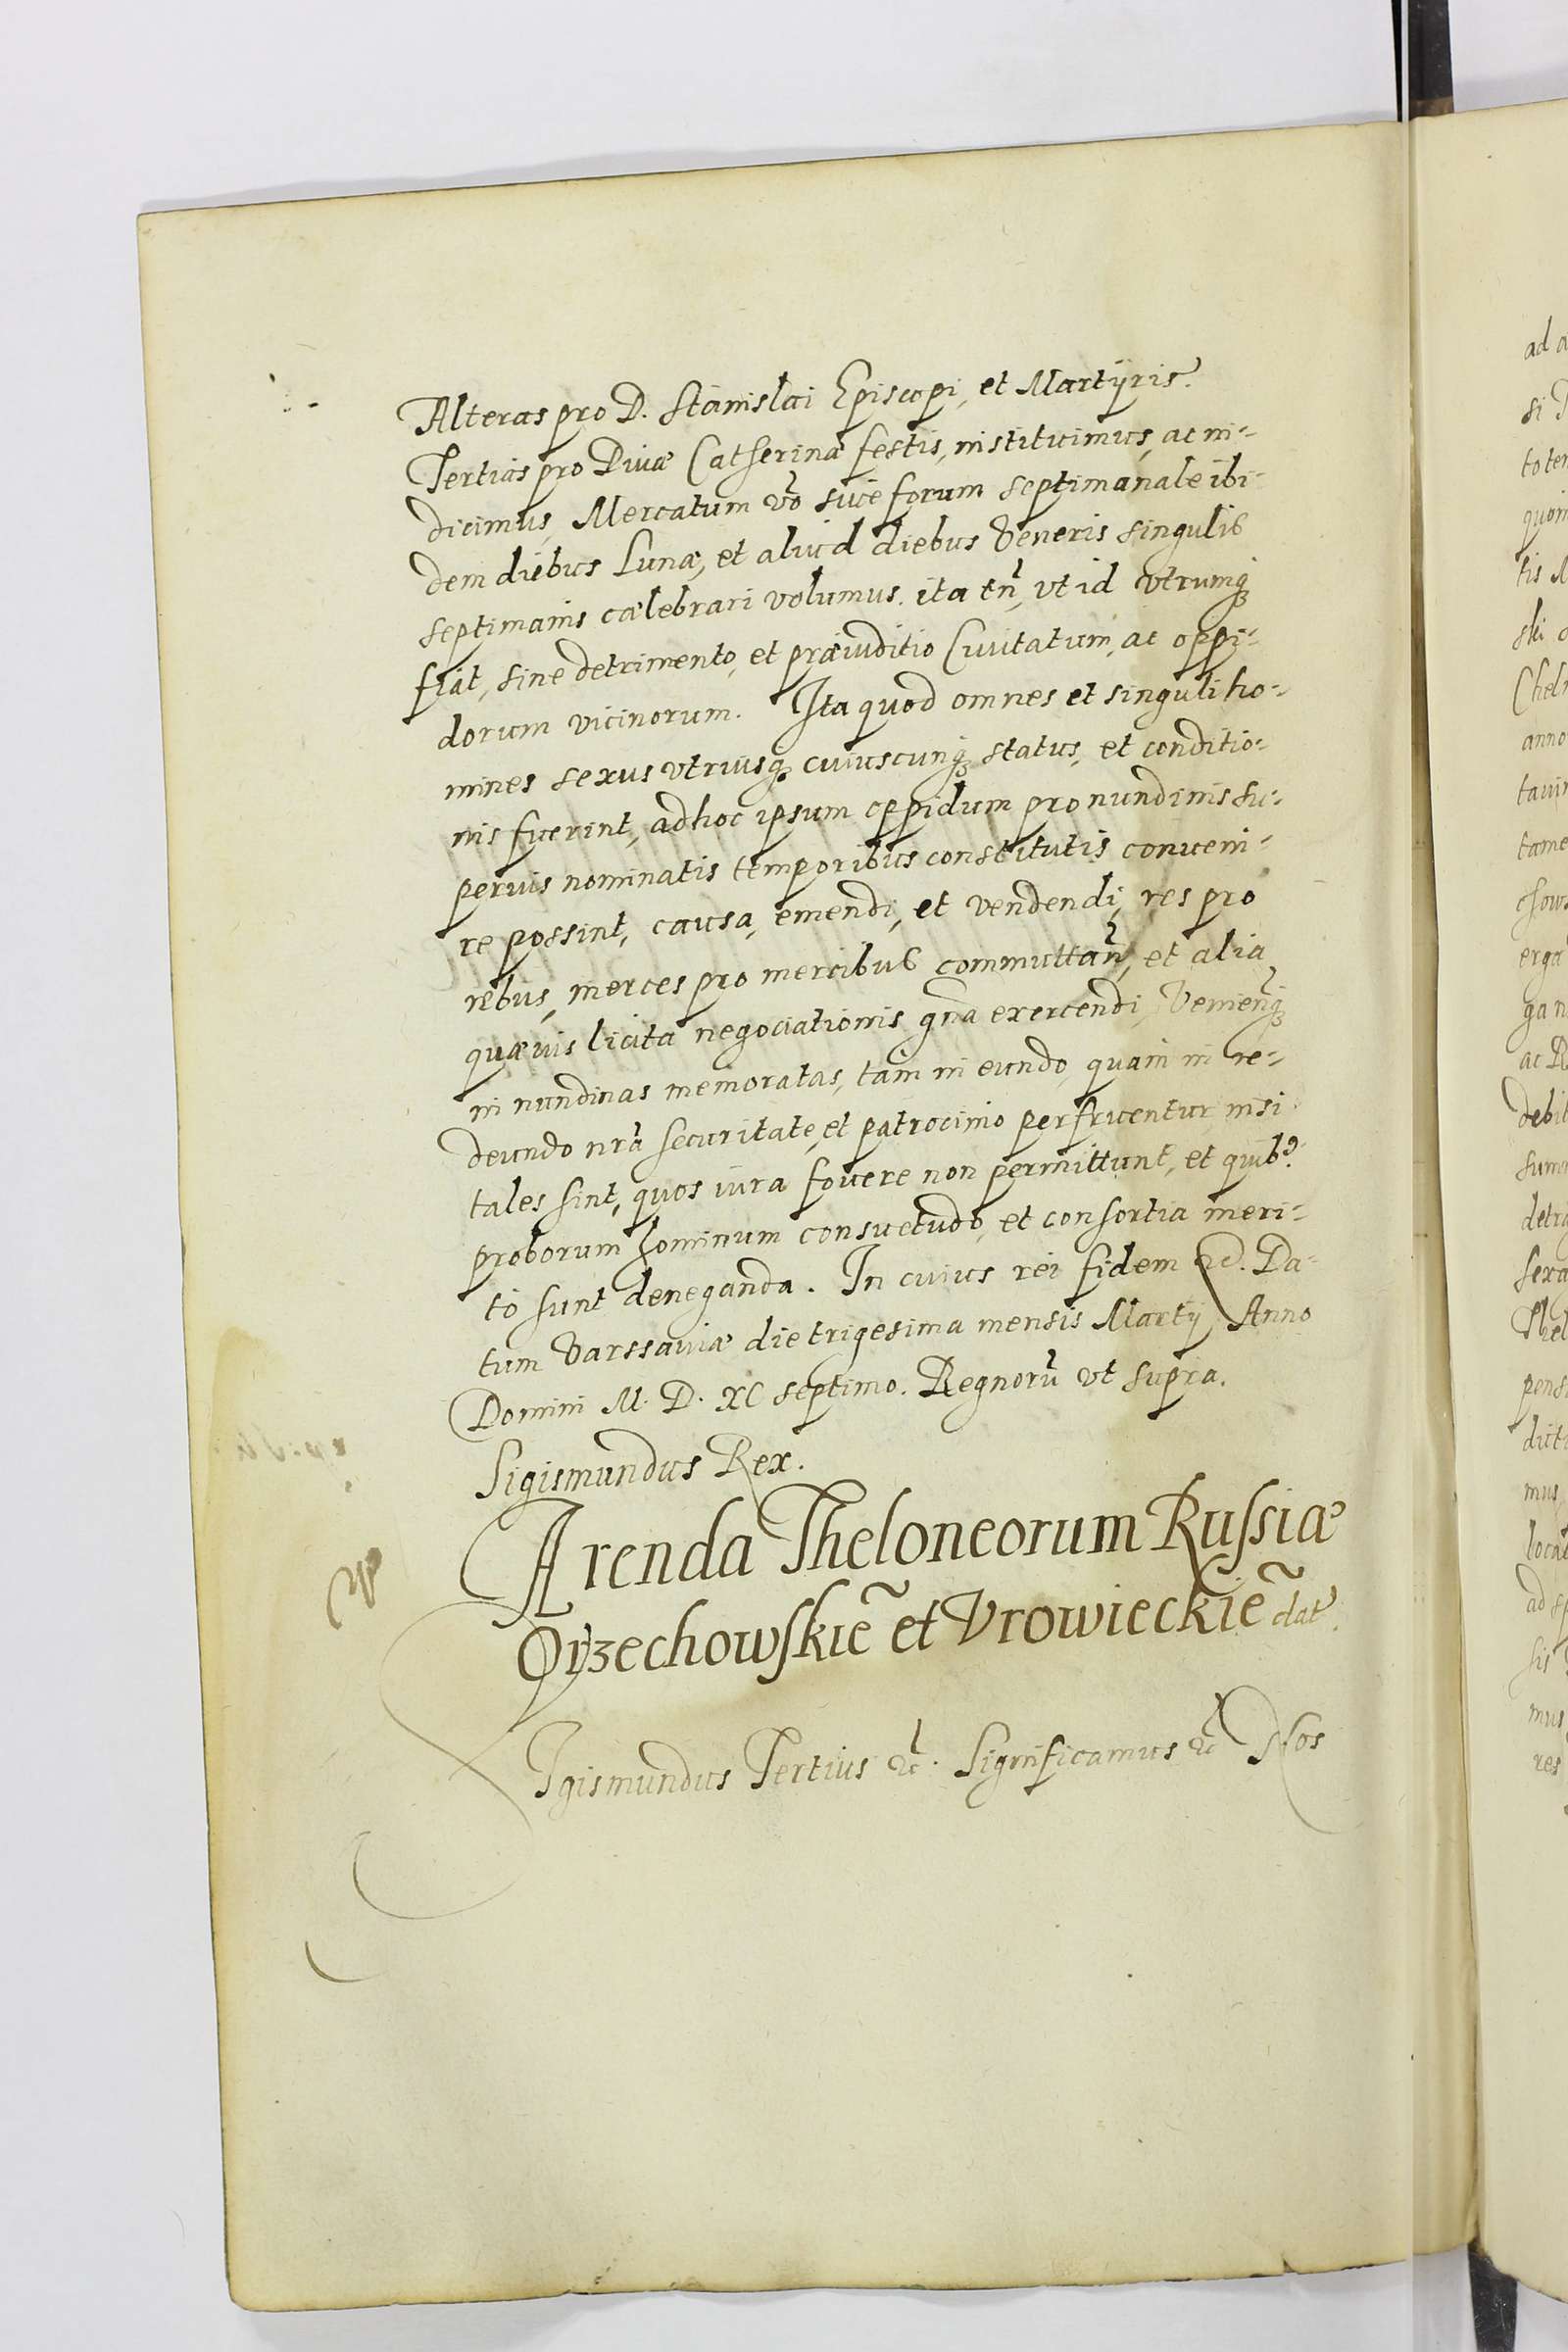 Alteras pro D. Stanislai Episcopi, et Martÿris.
Tertias pro Diuæ Catherinæ festis, instituimus, ac in-
dicimus, Mercatum vō siue forum septimanale ibi-
dem diebus Lunæ, et aliud diebus Veneris singulis
septimanis cælebrari volumus. ita tn̄, vt id vtrumq3
fiat, sine detrimento, et præiuditio Ciuitatum, ac oppi-
dorum vicinorum. Ita quod omnes et singuli ho-
mines sexus vtriusq3 cuiuscunq3 status, et conditio-
nis fuerint, ad hoc ipsum oppidum pro nundinis su-
perius nominatis temporibus constitutis conueni-
re possint, causa, emendi, et vendendi, res pro
rebus, merces pro mercibus commuttan̄, et alia
quæuis licita negociationis gn̄a exercendi, Venien̄q3
in nundinas memoratas, tam in eundo, quam in re-
deundo nrā securitate, et patrocinio perfruentur nisi
tales sint, quos iura fouere non permittunt, et quibꝰ
proborum hominum consuetudo, et consortia meri-
tò sunt deneganda. In cuius rei fidem &c. Da-
tum Varssauiæ die trigesima mensis Martÿ Anno
Domini M. D. XC septimo. Regnorū vt supra.
Sigismundus Rex.
Arenda Theloneorum Russiæ
Orzechowskiē et Vrowieckiē dat.
Sigismundus Tertius &c. Significamus &c Nos
ad a
si
toter
quon
tis
ski
Chel
anno
taui
tame
erga
ga
ac R
debi
sum
detra
sexa
Thel
pens
dict
mus
loca
ad
sis
mus
res